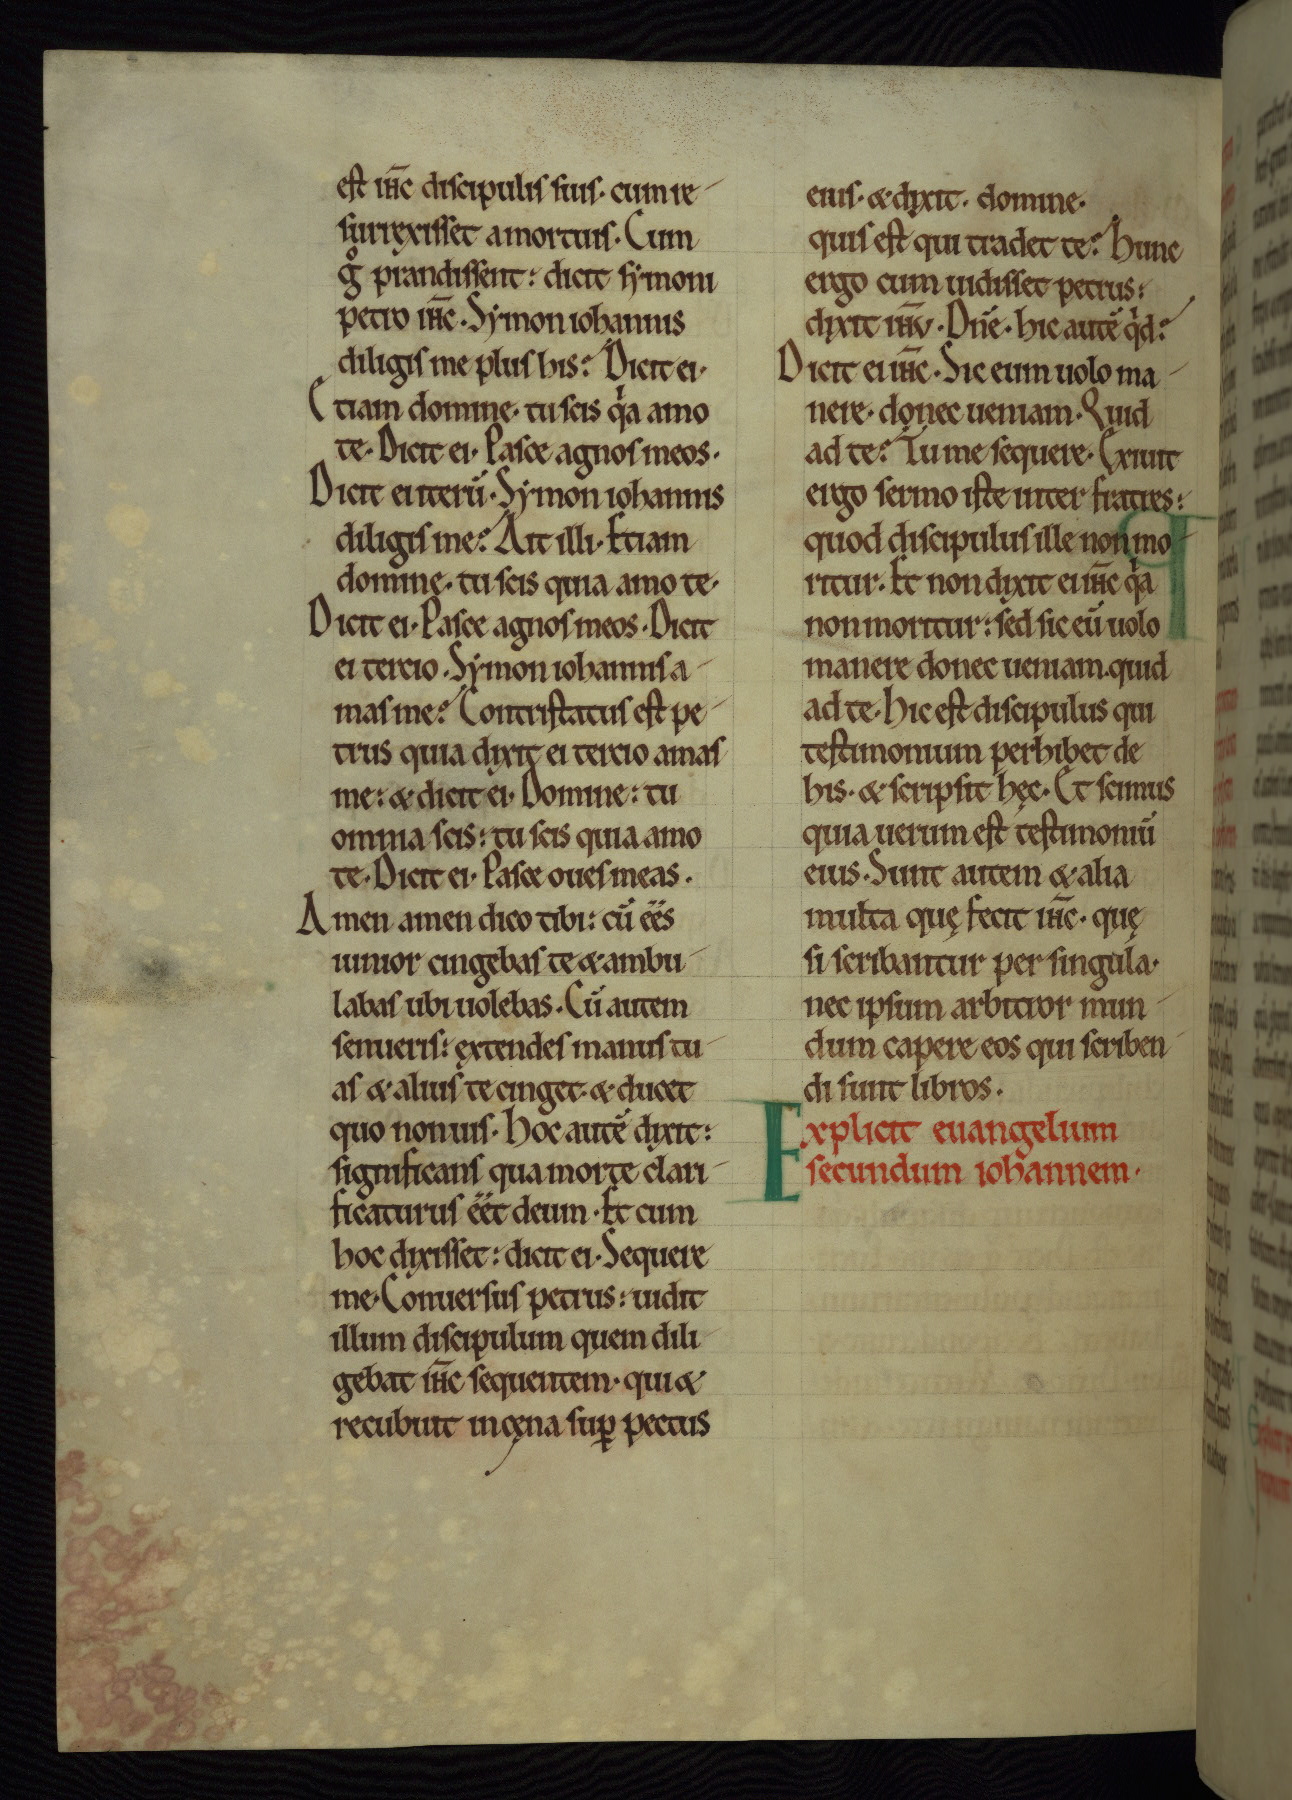 est ih̅c discipulis suis. cum re-
surrexisset a mortuis. Cum
gͦ prandissent: dicit sẏmoni
petro ih̅c. Sẏmon iohannis
diligis me plus his? Dicit ei.
Etiam domine. tu scis qͥa amo
te. Dicit ei. Pasce agnos meos.
Dicit ei iterū. Sẏmon iohannis
diligis me? Ait illi. Etiam
domine. tu scis quia amo te.
Dicit ei. Pasce agnos meos. Dicit
ei tercio. Sẏmon iohannis a-
mas me? Contristatus est pe-
trus quia dixit ei tercio amas
me: & dicit ei. Domine: tu
omnia scis: tu scis quia amo
te. Dicit ei. Pasce oues meas.
Amen amen dico tibi: cū ee̅s
iunior cingebas te & ambu-
labas ubi uolebas. Cū autem
senueris: extendes manus tu-
as & alius te cinget. & ducet
quo non uis. Hoc autē dixit:
significans qua morte clari-
ficaturus ee̅t deum. Et cum
hoc dixisset: dicit ei. Sequere
me. Conuersus petrus: uidit
illum discipulum quem dili-
gebat ih̅c sequentem. qui &
recubuit in cęna suꝑ pectus
eius. & dixit. domine.
quis est qui tradet te? Hunc
ergo cum uidisset petrus:
dixit ih̅u. Dn̅e. hic autē qͥd?
Dicit ei ih̅c. Sic eum uolo ma-
nere. donec ueniam. Quid
ad te? Tu me sequere. Exiuit
ergo sermo iste inter fratres:
quod discipulus ille non mo-
ritur. Et non dixit ei ih̅c qͥa
non moritur: sed sic eū uolo
manere donec ueniam. quid
ad te. Hic est discipulus qui
testimonium perhibet de
his. & scripsit hęc. Et scimus
quia uerum est testimoniū
eius. Sunt autem & alia
multa quę fecit ih̅c. quę
si scribantur per singula.
nec ipsum arbitror mun-
dum capere eos qui scriben-
di sunt libros.
Explicit euangelium
secundum iohannem.